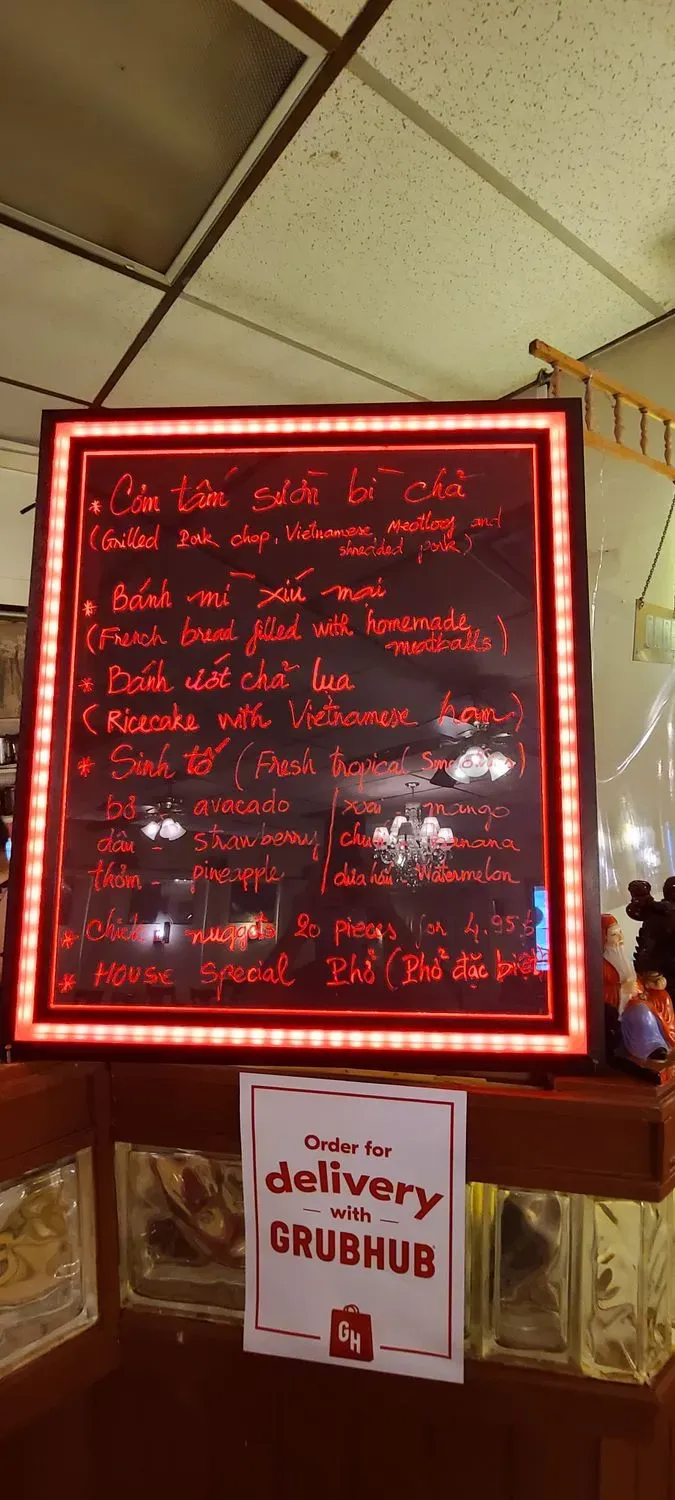 * Cơm tấm sườn bì chả
(Grilled Pork chop, Vietnamese Meatloag and
shredded pork)
* Bánh mì xíu mại
(French bread filled with homemade
meatballs)
* Bánh ướt chả lụa
(Ricecake with Vietnamese ham)
* Sinh tố (Fresh tropical Smoothies)
bơ - avacado / xoài - mango
dâu - strawberry / chuối - banana
thơm - pineapple / dưa hấu - Watermelon
* chicken nuggets 20 pieces for 4.95$
* HOUSE Special Phở (Phở đặc biệt)
Order for
delivery
— with —
GRUBHUB
GH